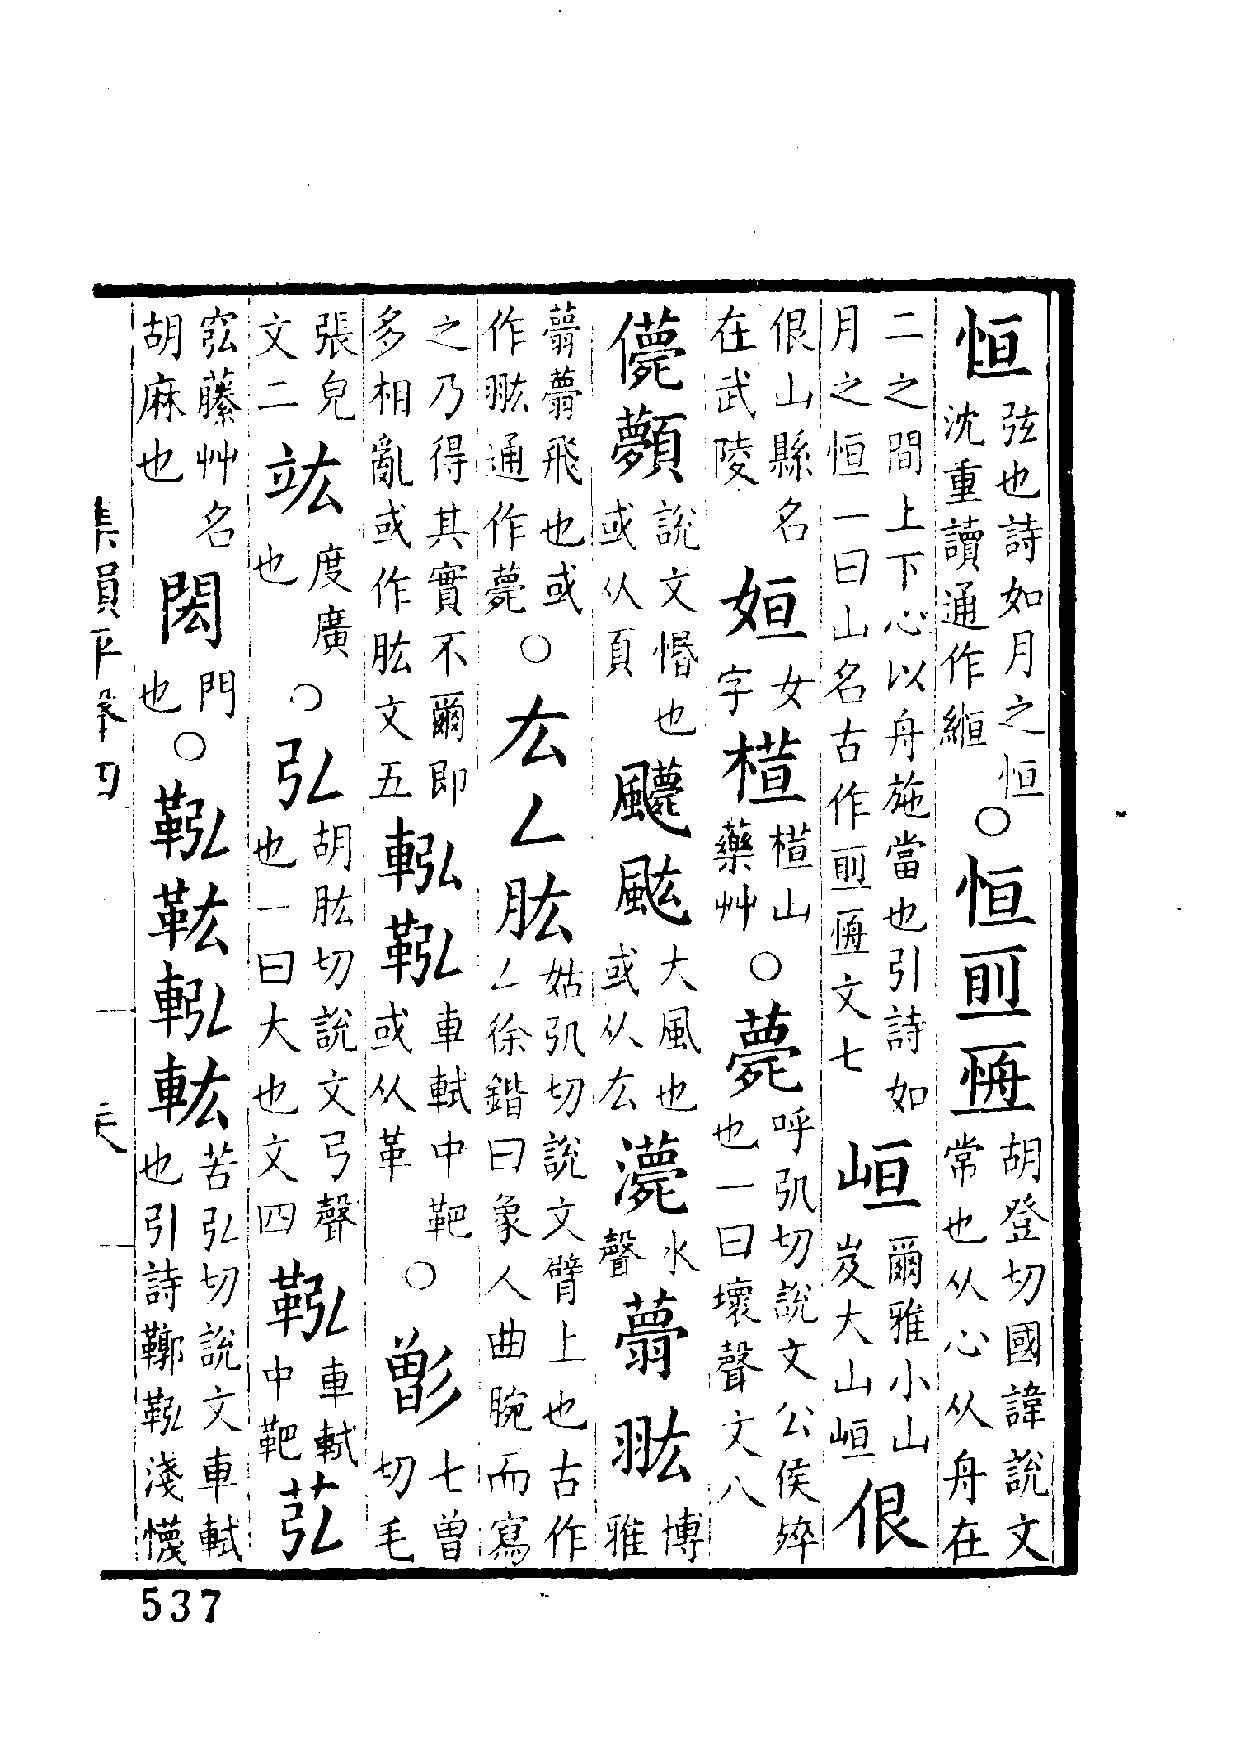 恒弦也詩如月之恒沈重讀通作緪○恒胡登切國諱說文常也从心从舟在
二之間上下心以舟施當也引詩如月之恒一曰山名古作文七峘爾雅小山岌大山峘佷
佷山縣名在武陵姮女字山藥艸○薨呼弘切說文公侯殌也一曰壞聲文八
儚顭說文惽也或从頁大風也或从厷水聲翃博雅
飛也或作翃通作薨○厷𠃋肱姑弘切說文臂上也古作𠃋徐鍇曰象人曲腕而寫
之乃得其實不爾即多相亂或作肱文五鞃車軾中靶或从革○七曾切毛
張皃文二竑度廣也○弘胡肱切說文弓聲也一曰大也文四鞃車軾中靶苰
苰藤艸名胡麻也閎門也○鞃苦弘切說文車軾也引詩鞹鞃淺幭
集韻平聲四
537